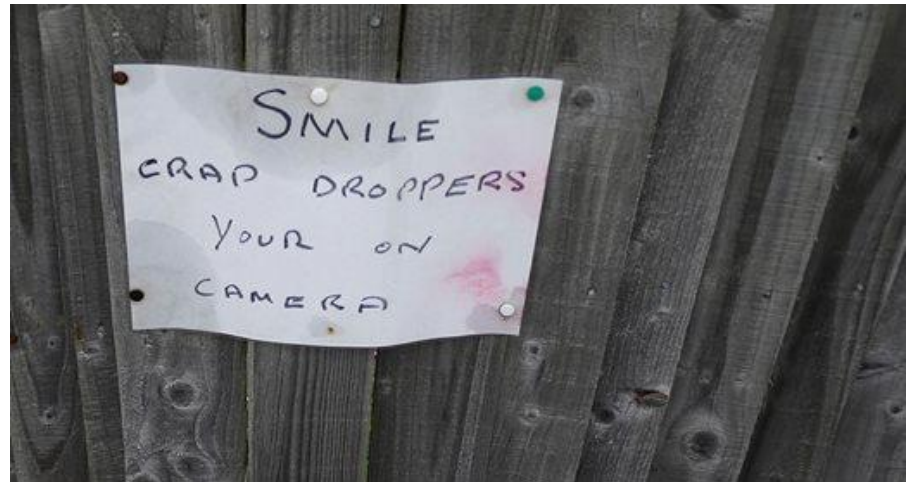 SMILE
CRAP DROPPERS
YOUR ON
CAMERA